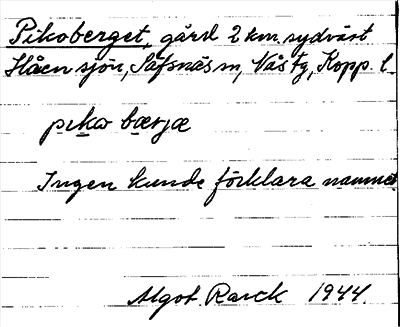 Pikoberget, gård 2 km sydväst
Håen sjön, Säfsnäs sn, Nås tg, Kopp. l.
pıkω bærjæ
Ingen kunde förklara namnet
Algot Rarck 1944